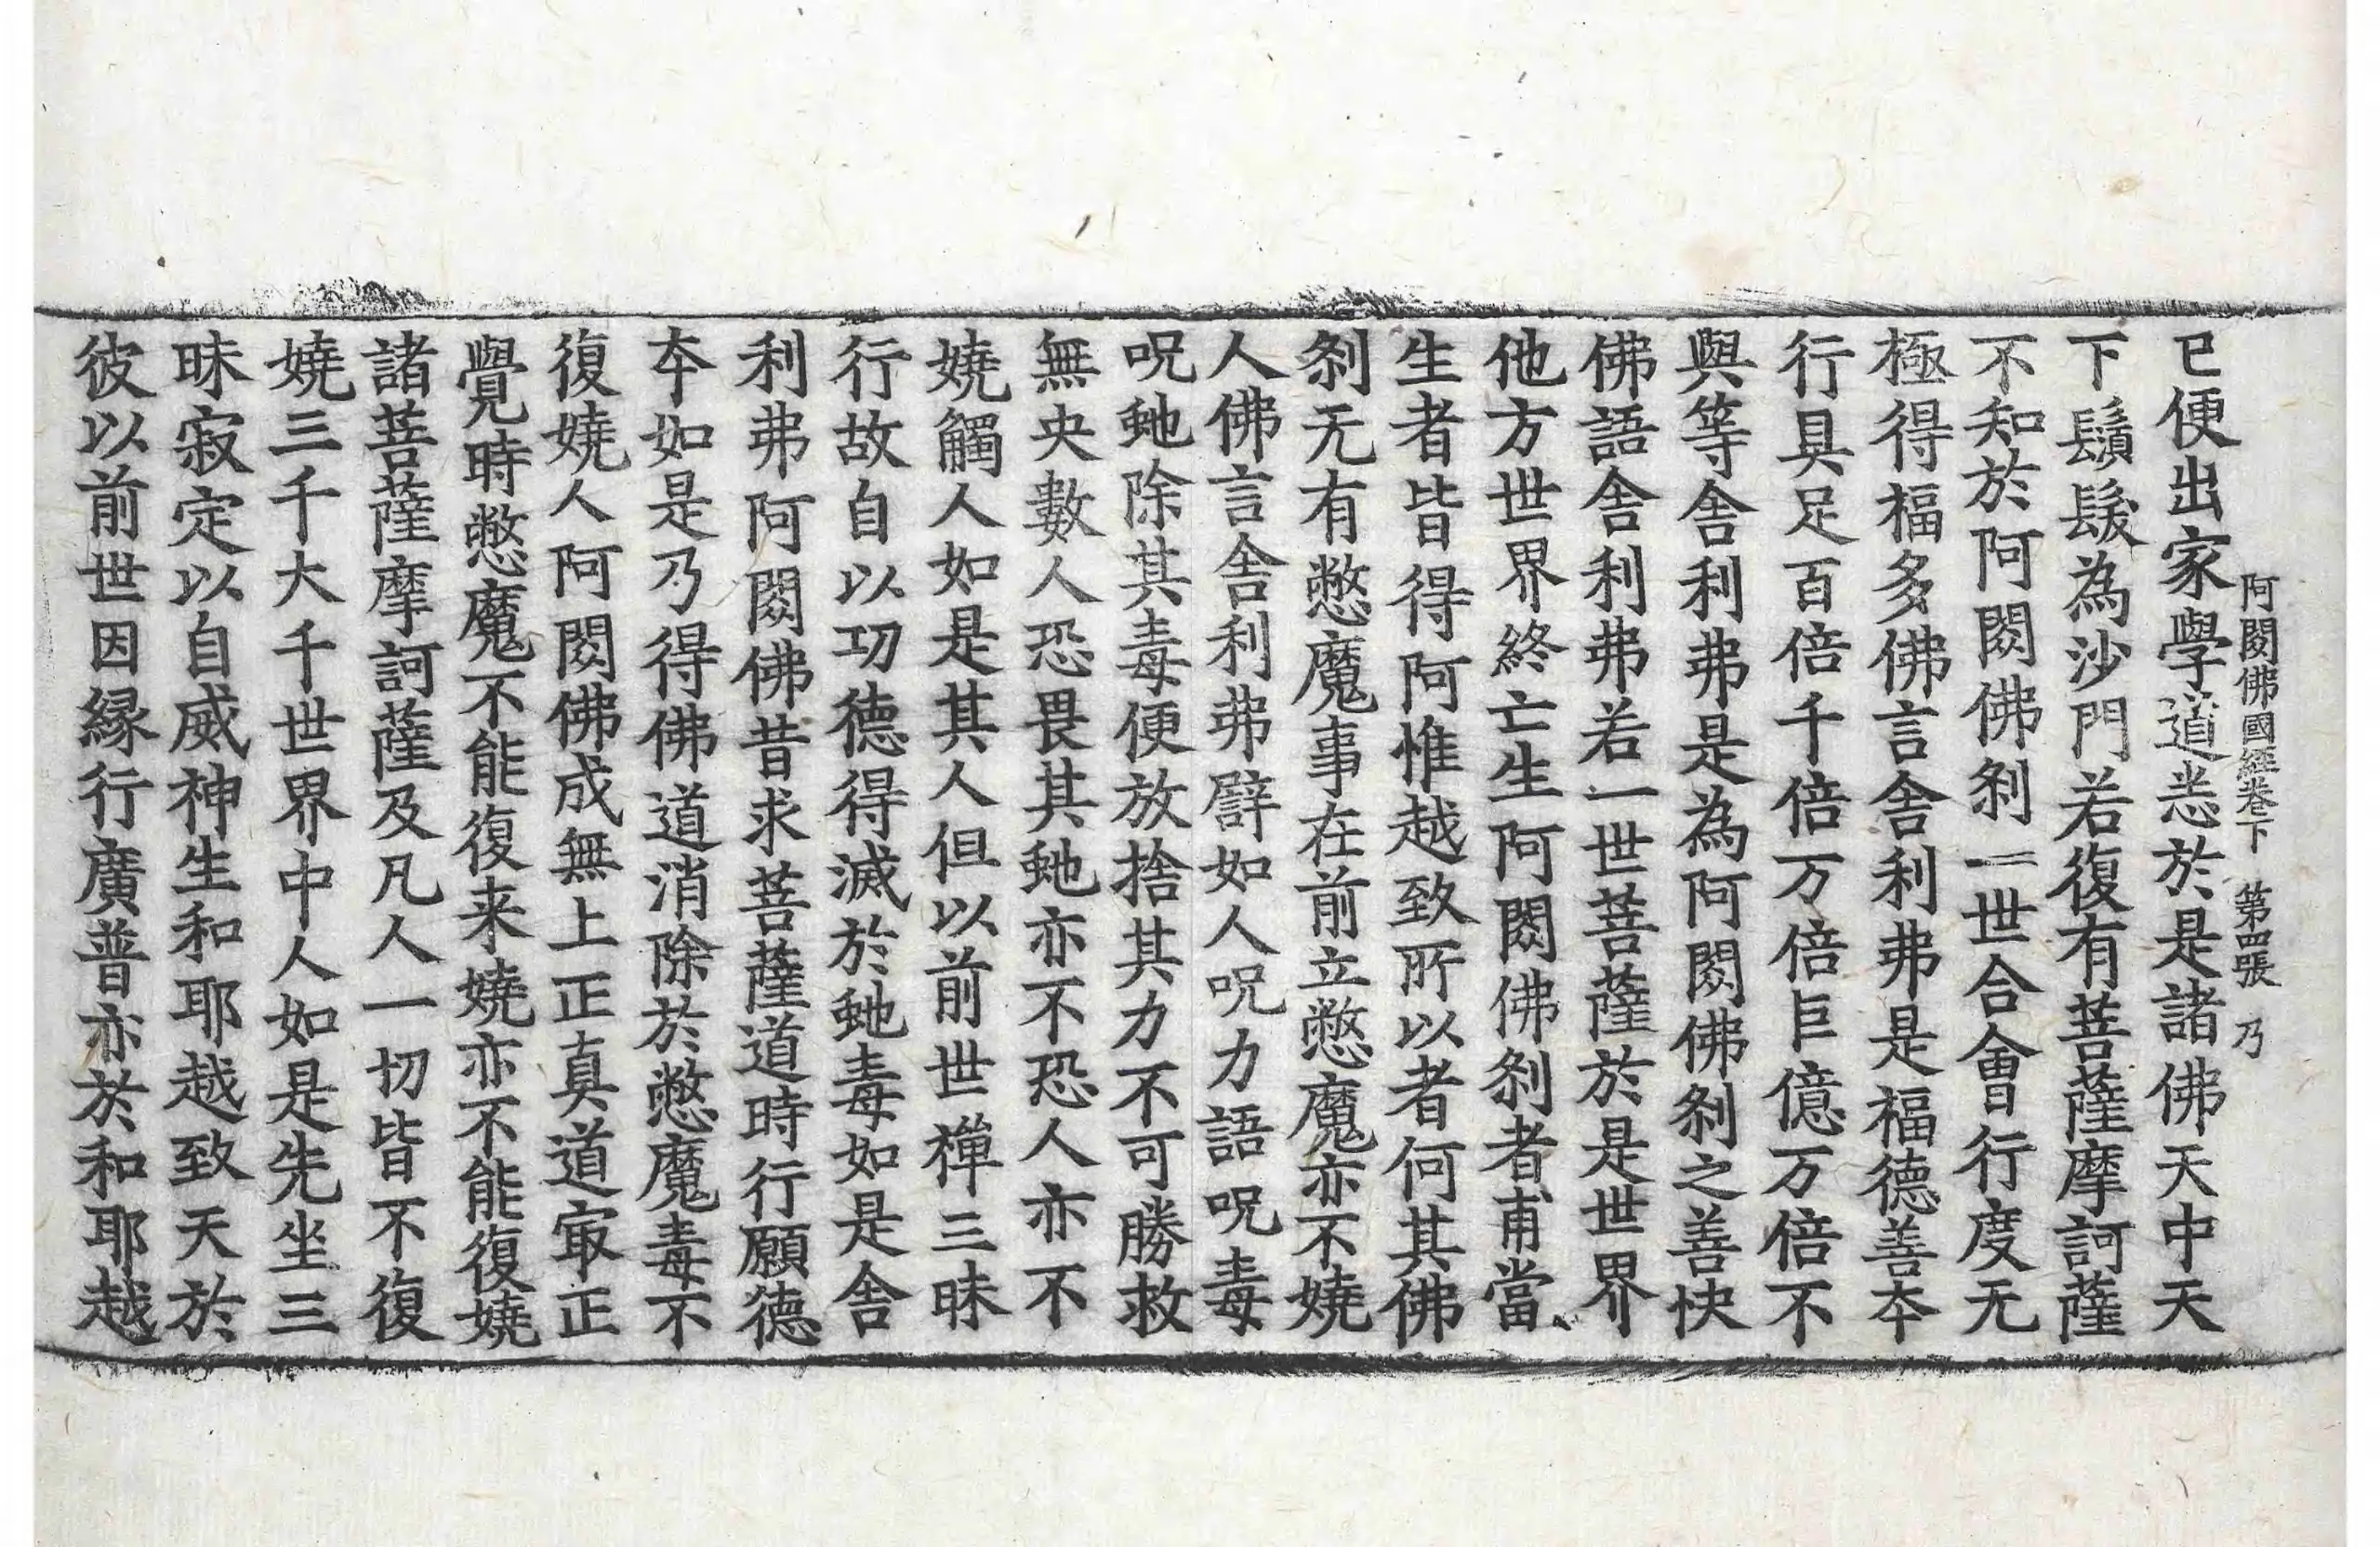 阿閦佛國經卷下 第四張 乃
已便出家學道悉於是諸佛天中天
下鬚髮為沙門若復有菩薩摩訶薩
不知於阿閦佛剎一世合會行度无
極得福多佛言舍利弗是福德善夲
行具足百倍千倍万倍巨億万倍不
與等舍利弗是為阿閦佛剎之善快
佛語舍利弗若一世菩薩於是世界
他方世界終亡生阿閦佛剎者甫當
生者皆得阿惟越致所以者何其佛
剎无有憋魔事在前立憋魔亦不嬈
人佛言舍利弗譬如人呪力語呪毒
呪虵除其毒便放捨其力不可勝救
無央數人恐畏其虵亦不恐人亦不
嬈觸人如是其人但以前世禪三昧
行故自以功德得滅於虵毒如是舍
利弗阿閦佛昔求菩薩道時行願德
夲如是乃得佛道消除於憋魔毒不
復嬈人阿閦佛成無上正真道冣正
覺時憋魔不能復来嬈亦不能復嬈
諸菩薩摩訶薩及凡人一切皆不復
嬈三千大千世界中人如是先坐三
昧寂定以自威神生和耶越致天於
彼以前世因緣行廣普亦於和耶越